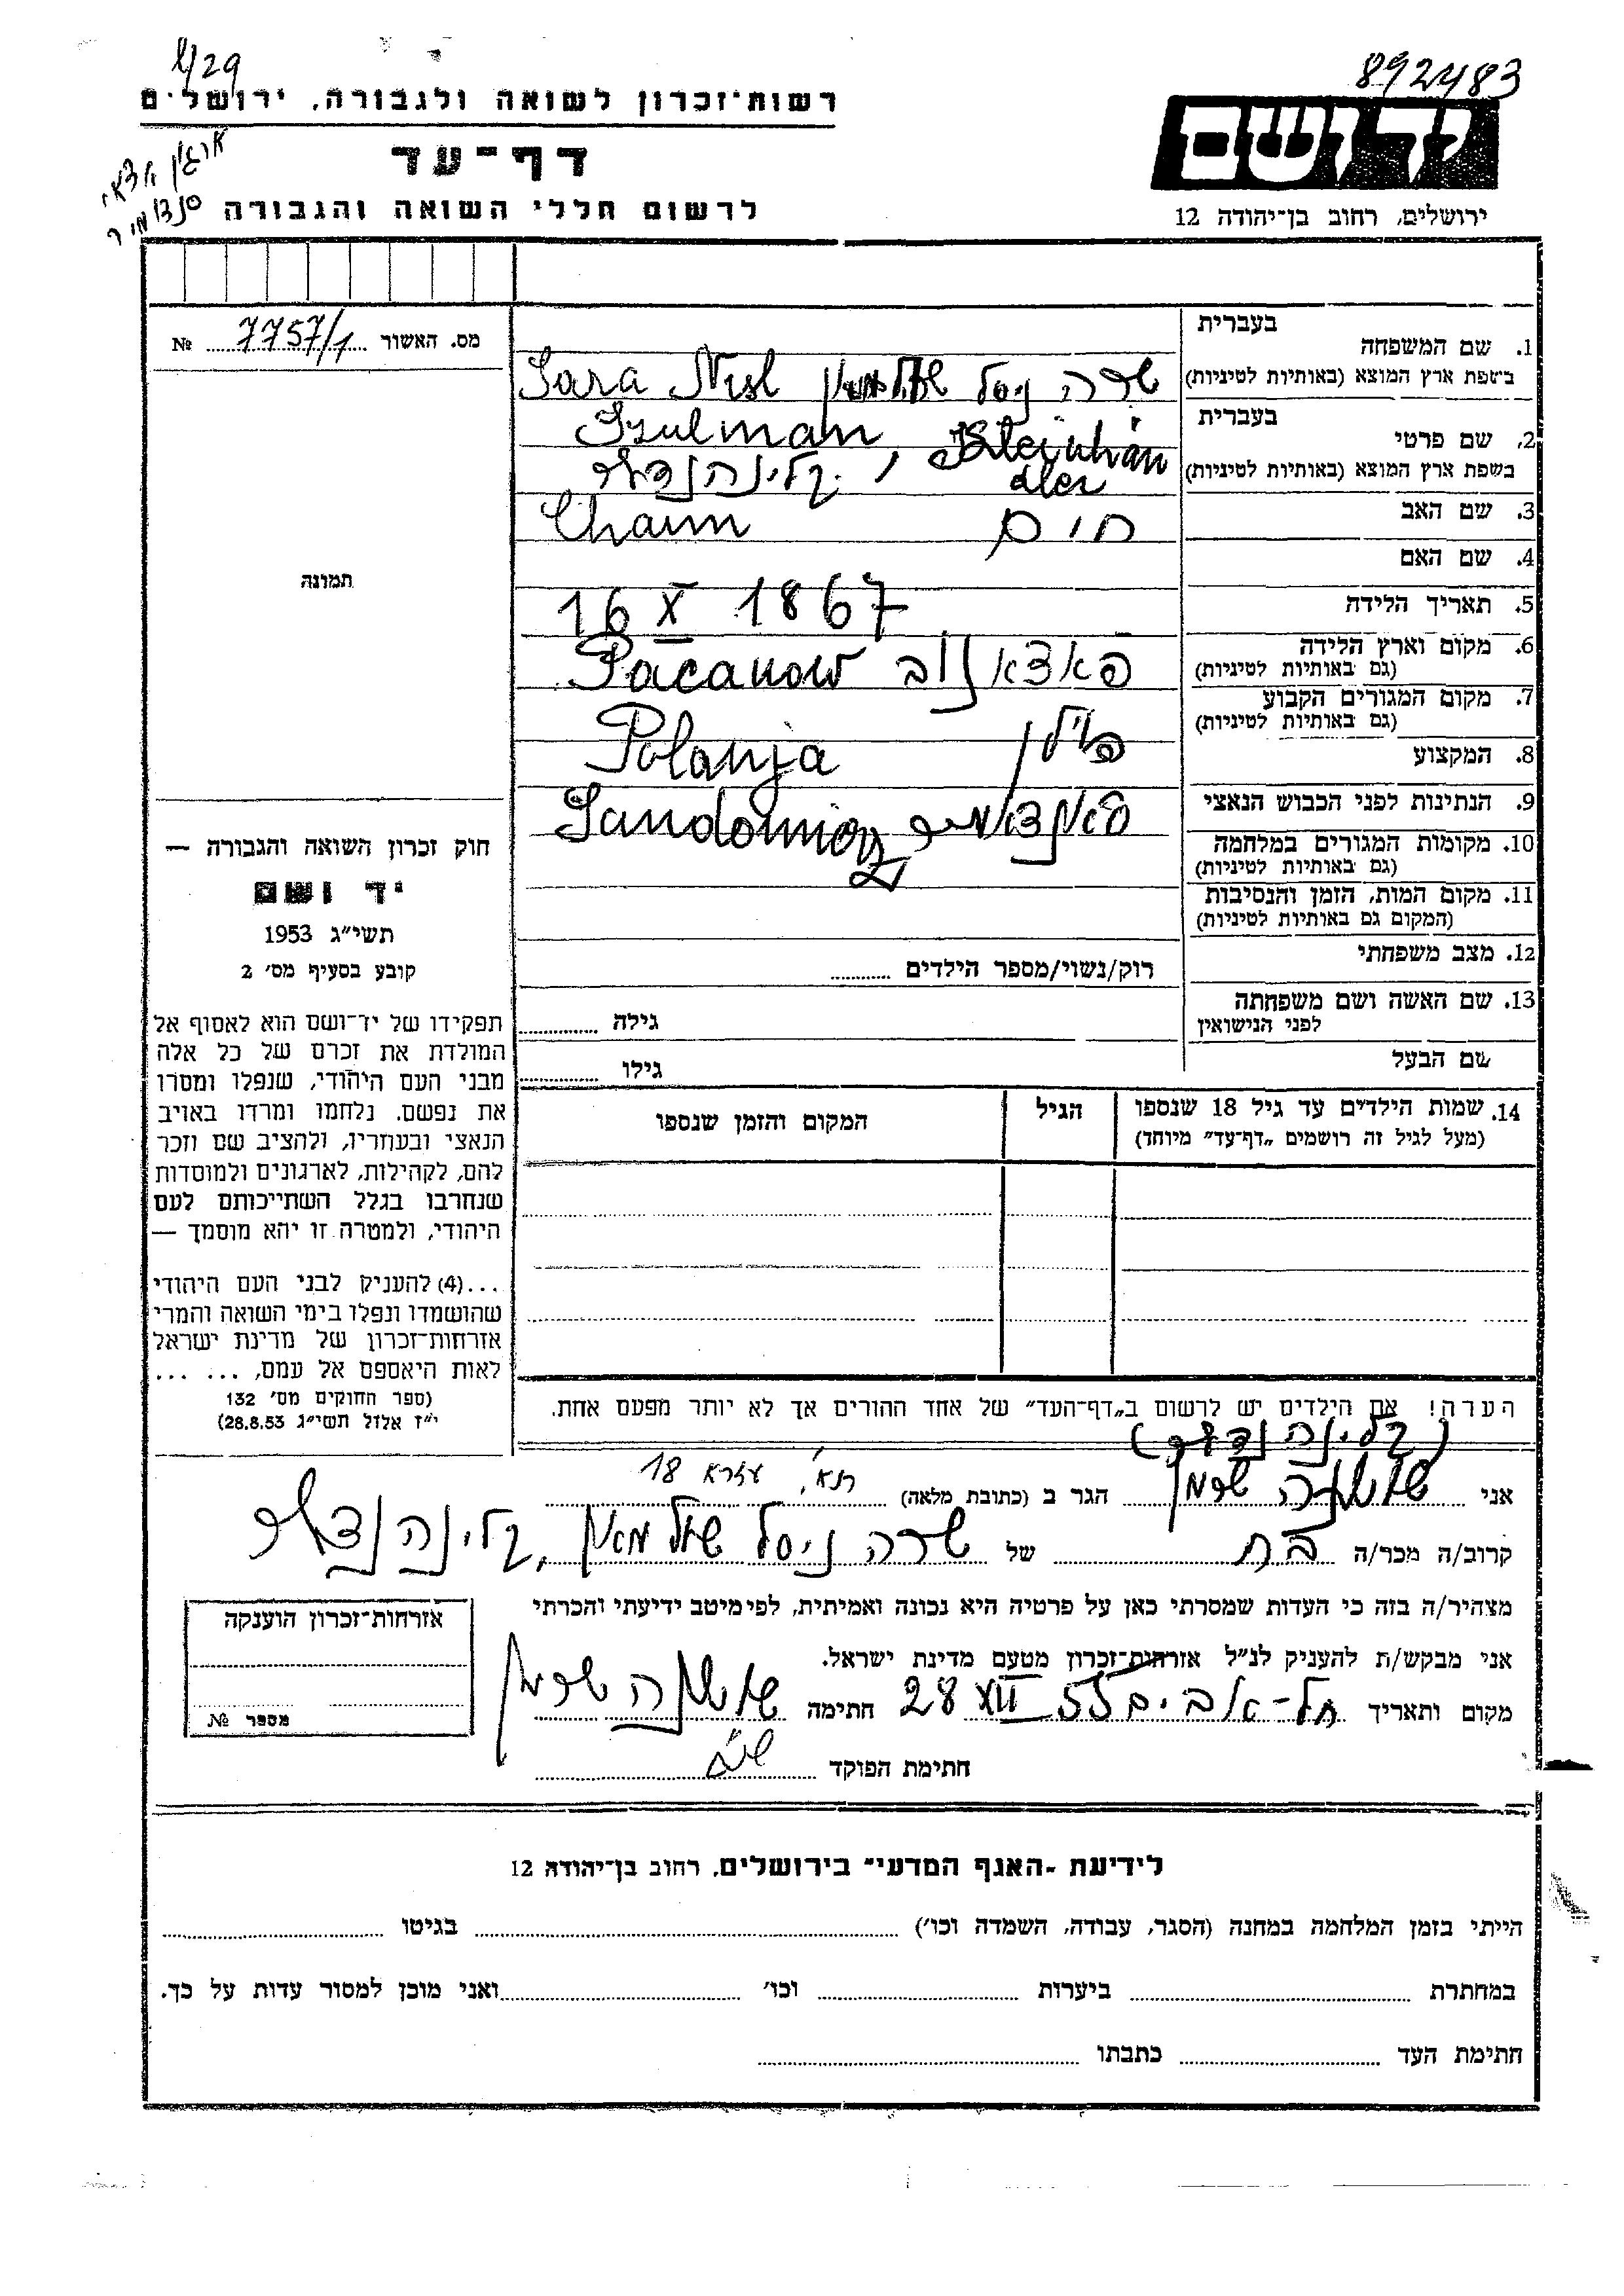 8/29
892483
רשות־זכרון לשואה ולגבורה, ירושלים
יד ושם
ארגון יוצאי
סנדומיר
דף־עד
לרשום חללי השואה והגבורה
ירושלים, רחוב בן־יהודה 12
מס. האשור 7757/1 №
תמונה
חוק זכרון השואה והגבורה —
יד ושם
תשי״ג 1953
קובע בסעיף מס׳ 2
תפקידו של יד־ושם הוא לאסוף אל
המולדת את זכרם של כל אלה
מבני העם היהודי, שנפלו ומסרו
את נפשם. נלחמו ומרדו באויב
הנאצי ובעוזריו, ולהציב שם וזכר
להם, לקהילות, לארגונים ולמוסדות
שנחרבו בגלל השתייכותם לעם
היהודי, ולמטרה זו יהא מוסמך —
...(4) להעניק לבני העם היהודי
שהושמדו ונפלו בימי השואה והמרי
אזרחות־זכרון של מדינת ישראל
לאות היאספם אל עמם, ... ...
(ספר החוקים מס׳ 132
י״ז אלול תשי״ג 28.8.53)
1. שם המשפחה בעברית
בשפת ארץ המוצא (באותיות לטיניות) שרה ניסל Sara Nisl
2. שם פרטי בעברית Szulman,
בשפת ארץ המוצא (באותיות לטיניות) קלינהנדלר
3. שם האב חיים Chaim
4. שם האם
5. תאריך הלידה 16 X 1867
6. מקום וארץ הלידה פאצאנוב Pacanow
(גם באותיות לטיניות)
7. מקום המגורים הקבוע
(גם באותיות לטיניות)
8. המקצוע פולין Polanja
9. הנתינות לפני הכבוש הנאצי סאנדאמיר Sandomierz
10. מקומות המגורים במלחמה
(גם באותיות לטיניות)
11. מקום המות, הזמן והנסיבות
(המקום גם באותיות לטיניות)
12. מצב משפחתי רוק/נשוי/מספר הילדים
13. שם האשה ושם משפחתה
לפני הנישואין גילה
שם הבעל גילו
14. שמות הילדים עד גיל 18 שנספו הגיל המקום והזמן שנספו
(מעל לגיל זה רושמים „דף־עד״ מיוחד)
הערה! את הילדים יש לרשום ב„דף־העד״ של אחד ההורים אך לא יותר מפעם אחת.
(קלינהנדלר)
אני שושנה שרמן הגר ב (כתובת מלאה) ת״א, עזרא 18
קרוב/ה מכר/ה בת של שרה ניסל שולמאן, קלינהנדלר
מצהיר/ה בזה כי העדות שמסרתי כאן על פרטיה היא נכונה ואמיתית, לפי מיטב ידיעתי והכרתי
אני מבקש/ת להעניק לנ״ל אזרחות־זכרון מטעם מדינת ישראל.
מקום ותאריך תל-אביב 28 XII 55 חתימה שושנה שרמן
חתימת הפוקד
אזרחות־זכרון הוענקה
מספר №
לידיעת „האגף המדעי״ בירושלים, רחוב בן־יהודה 12
הייתי בזמן המלחמה במחנה (הסגר, עבודה, השמדה וכו׳) בגיטו
במחתרת ביערות וכו׳ ואני מוכן למסור עדות על כך.
חתימת העד כתבתו